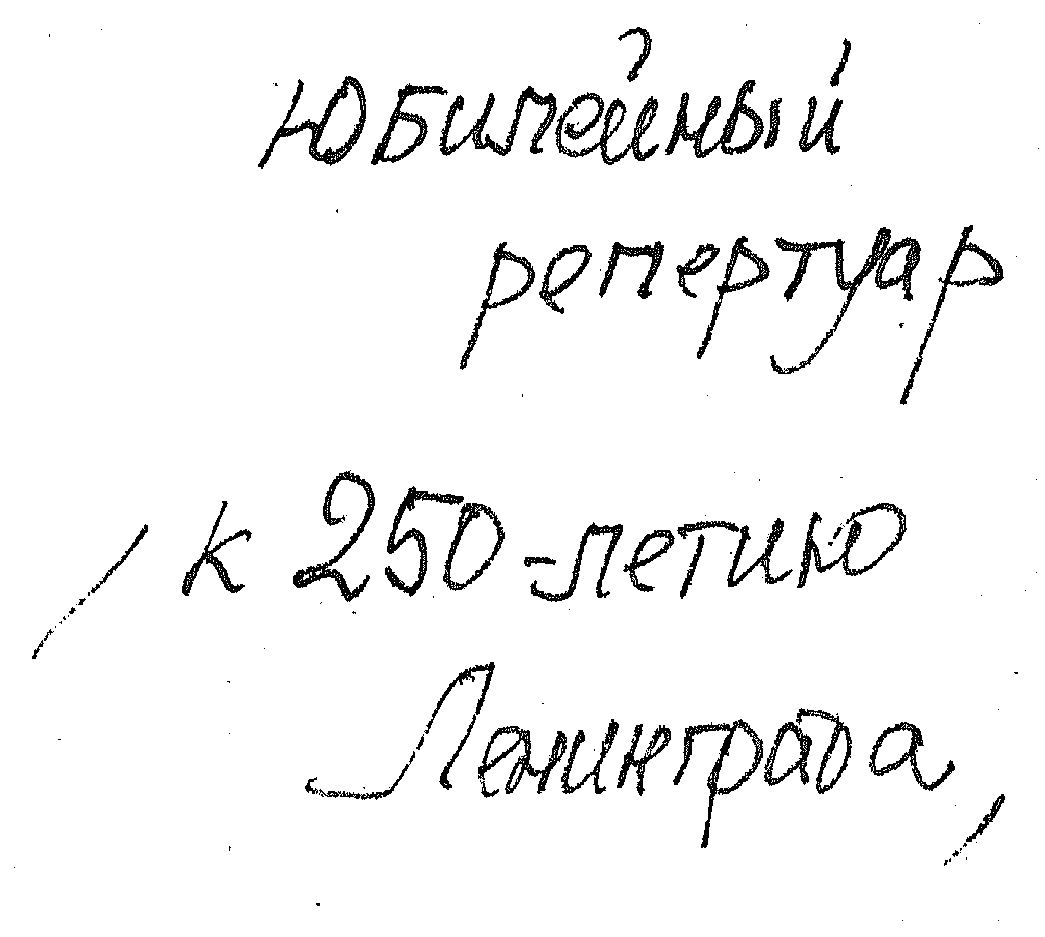 Юбилейный
репертуар
/ к 250-летию
Ленинграда /